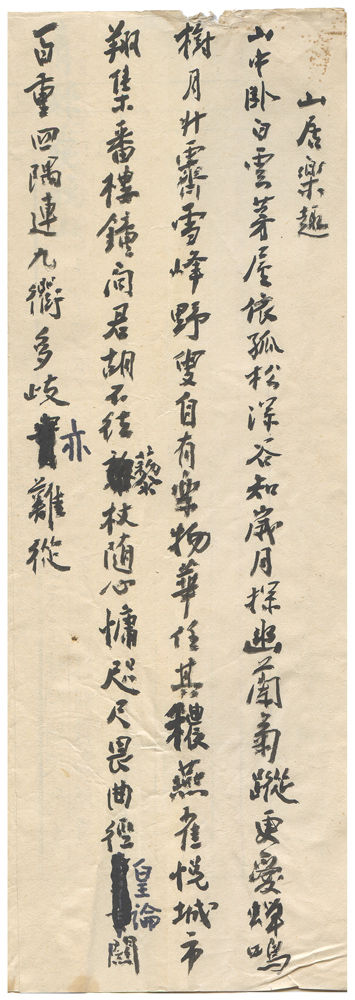 山居樂趣
山中卧白雲茅屋依孤松深谷知歲月探幽蘭菊蹤更愛蟬鳴
樹月升霽雪峰野叟自有樂物華任其穠燕雀悦城市
翔集番樓鐘問君胡不往藜杖随心慵咫尺畏曲徑皇論關
百重四隅連九衢多歧亦難從